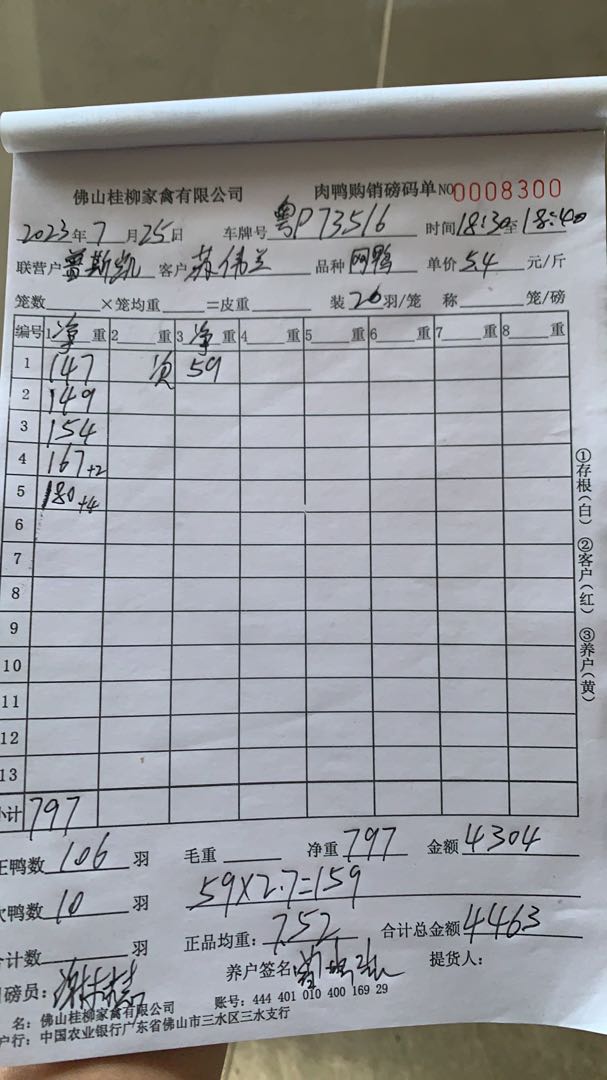 佛山桂柳家禽有限公司 肉鸭购销磅码单 NO 0008300
2023年 7 月 25 日 车牌号 粤P73516 时间 18:30至 18:40
联营户 曹斯凯 客户 苏伟兰 品种 网鸭 单价 5.4 元/斤
笼数 ×笼均重 =皮重 装 20 羽/笼 称 笼/磅
编号 1 净 重 2 重 3 净 重 4 重 5 重 6 重 7 重 8 重
1 147 次 59
2 149
3 154
4 167+2
5 180+4
6
7
8
9
10
11
12
13
小计 797
①存根(白) ②客户(红) ③养户(黄)
正鸭数 106 羽 毛重 净重 797 金额 4304
次鸭数 10 羽 59×2.7=159
合计数 羽 正品均重: 7.52 合计总金额 4463
司磅员: 养户签名 提货人:
名: 佛山桂柳家禽有限公司 账号: 444 401 010 400 169 29
户行: 中国农业银行广东省佛山市三水区三水支行